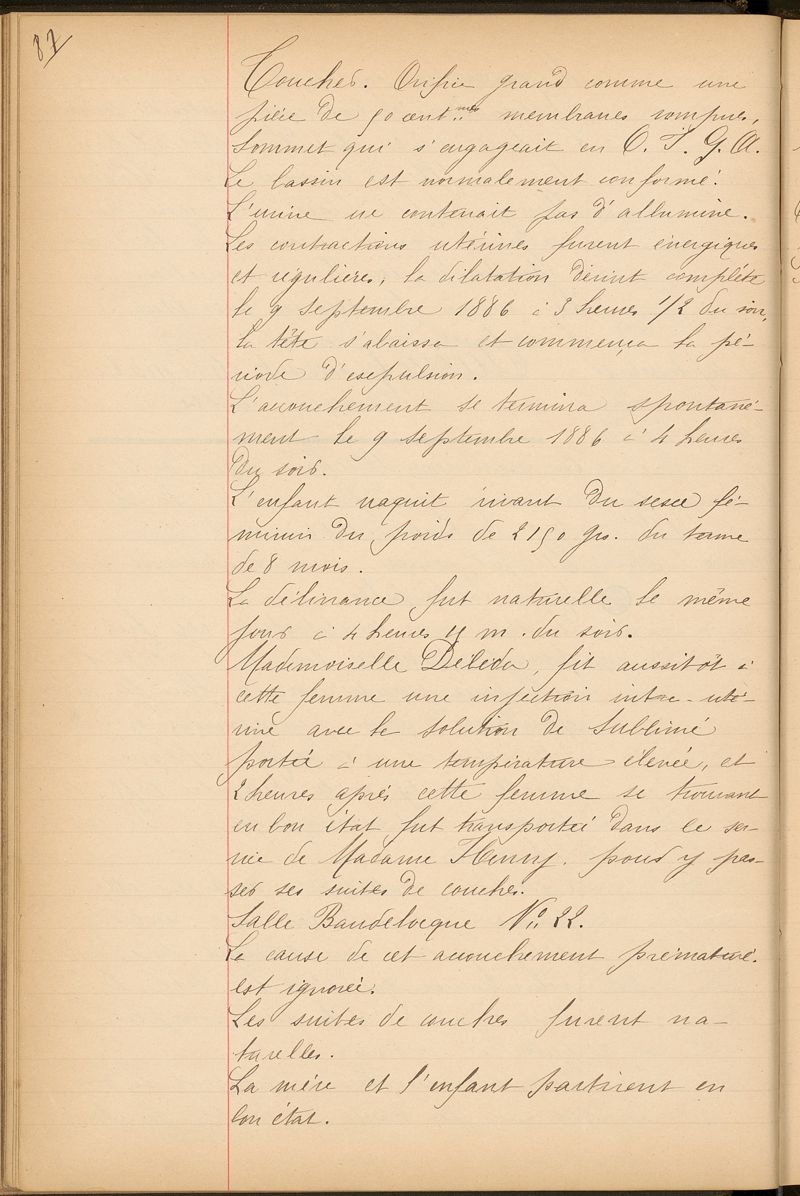 87
Toucher. Orifice grand comme une
pièce de 50 cent.mes membranes rompues,
sommet qui s'engageait en O. I. G. A.
Le bassin est normalement conformé.
L'urine ne contenait pas d'albumine.
Les contractions utérines furent énergiques
et régulières, la dilatation devint complète
le 9 septembre 1886 à 3 heures 1/2 du soir,
la tête s'abaissa et commença la pé-
riode d'expulsion.
L'accouchement se termina spontané-
ment le 9 septembre 1886 à 4 heures
du soir.
L'enfant naquit vivant du sexe fé-
minin du poids de 2150 grs. du terme
de 8 mois.
La délivrance fut naturelle le même
jour à 4 heures 11 m. du soir.
Mademoiselle Déléda, fit aussitôt à
cette femme une injection intra-uté-
rine avec la solution de sublimé
portée à une température élevée, et
2 heures après cette femme se trouvant
en bon état fut transportée dans le ser-
vice de Madame Henry. pour y pas-
ser ses suites de couches.
Salle Baudelocque No 22.
La cause de cet accouchement prématuré.
est ignorée.
Les suites de couches furent na-
turelles.
La mère et l'enfant partirent en
bon état.